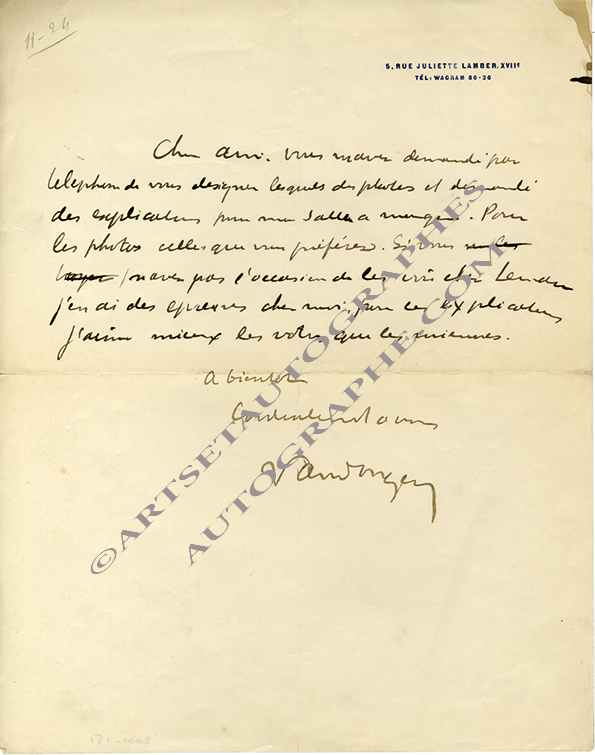 11-24
5, RUE JULIETTE LAMBER. XVIIe
TÉL: WAGRAM 80-26
Cher ami. vous m'avez demandé par
telephone de vous designer lesquels des photos et demandé
des explications pour ma salle a manger. Pour
les photos celles que vous préférez. Si vous
n'avez pas l'occasion de les voir chez
j'en ai des epreuves chez moi, pour les explications
j'aime mieux les votre que les miennes.
A bientot
Cordialement a vous
Van Dongen
©ARTSETAUTOGRAPHES
AUTOGRAPHE.COM